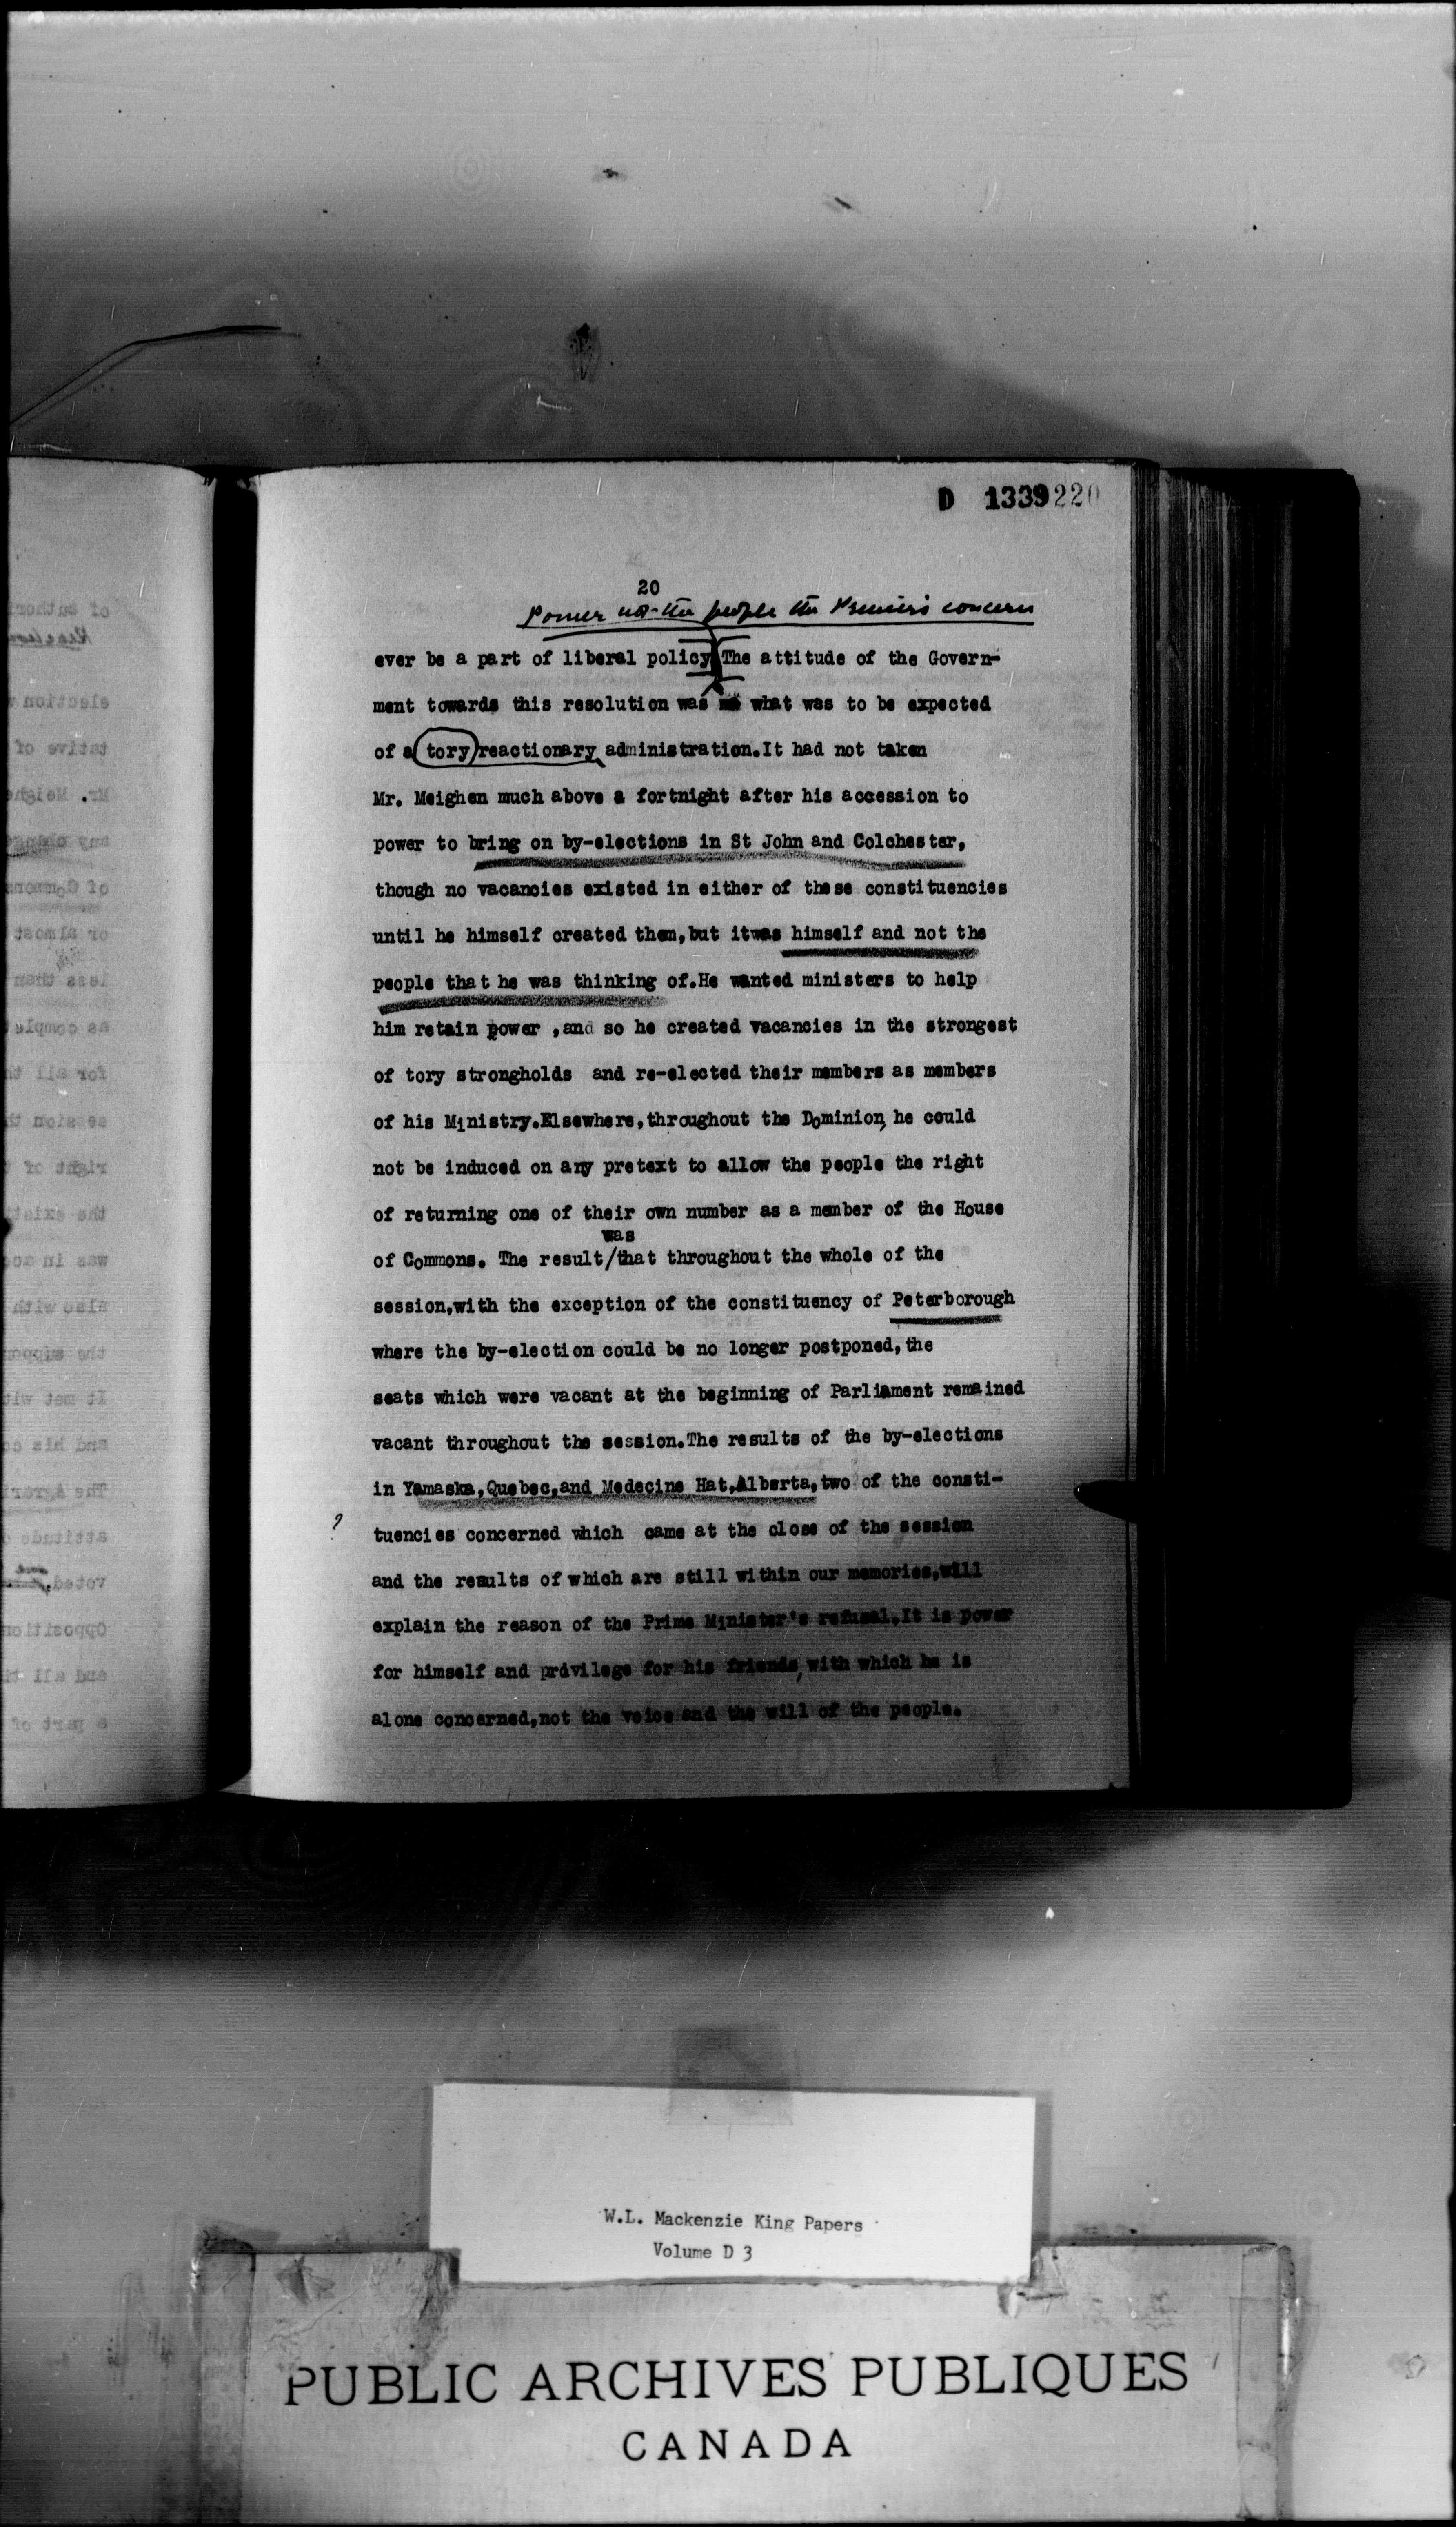 D 1339220
20
Power not the people the Premier's concern
ever be a part of liberal policy The attitude of the Govern-
ment towards this resolution was what was to be expected
of a tory reactionary administration.It had not taken
Mr. Meighen much above a fortnight after his accession to
power to bring on by-elections in St John and Colchester,
though no vacancies existed in either of these constituencies
until he himself created them,but itwas himself and not the
people that he was thinking of.He wanted ministers to help
him retain power ,and so he created vacancies in the strongest
of tory strongholds and re-elected their members as members
of his Ministry.Elsewhere,throughout the Dominion, he could
not be induced on any pretext to allow the people the right
of returning one of their own number as a member of the House
was
of Commons. The result/that throughout the whole of the
session,with the exception of the constituency of Peterborough
where the by-election could be no longer postponed,the
seats which were vacant at the beginning of Parliament remained
vacant throughout the session.The results of the by-elections
in Yamaska,Quebec,and Medecine Hat,Alberta,two of the consti-
? tuencies concerned which came at the close of the session
and the results of which are still within our memories,will
explain the reason of the Prime Minister's refusal.It is power
for himself and privilege for his friends, with which he is
alone concerned,not the voice and the will of the people.
W.L. Mackenzie King Papers
Volume D 3
PUBLIC ARCHIVES PUBLIQUES
CANADA